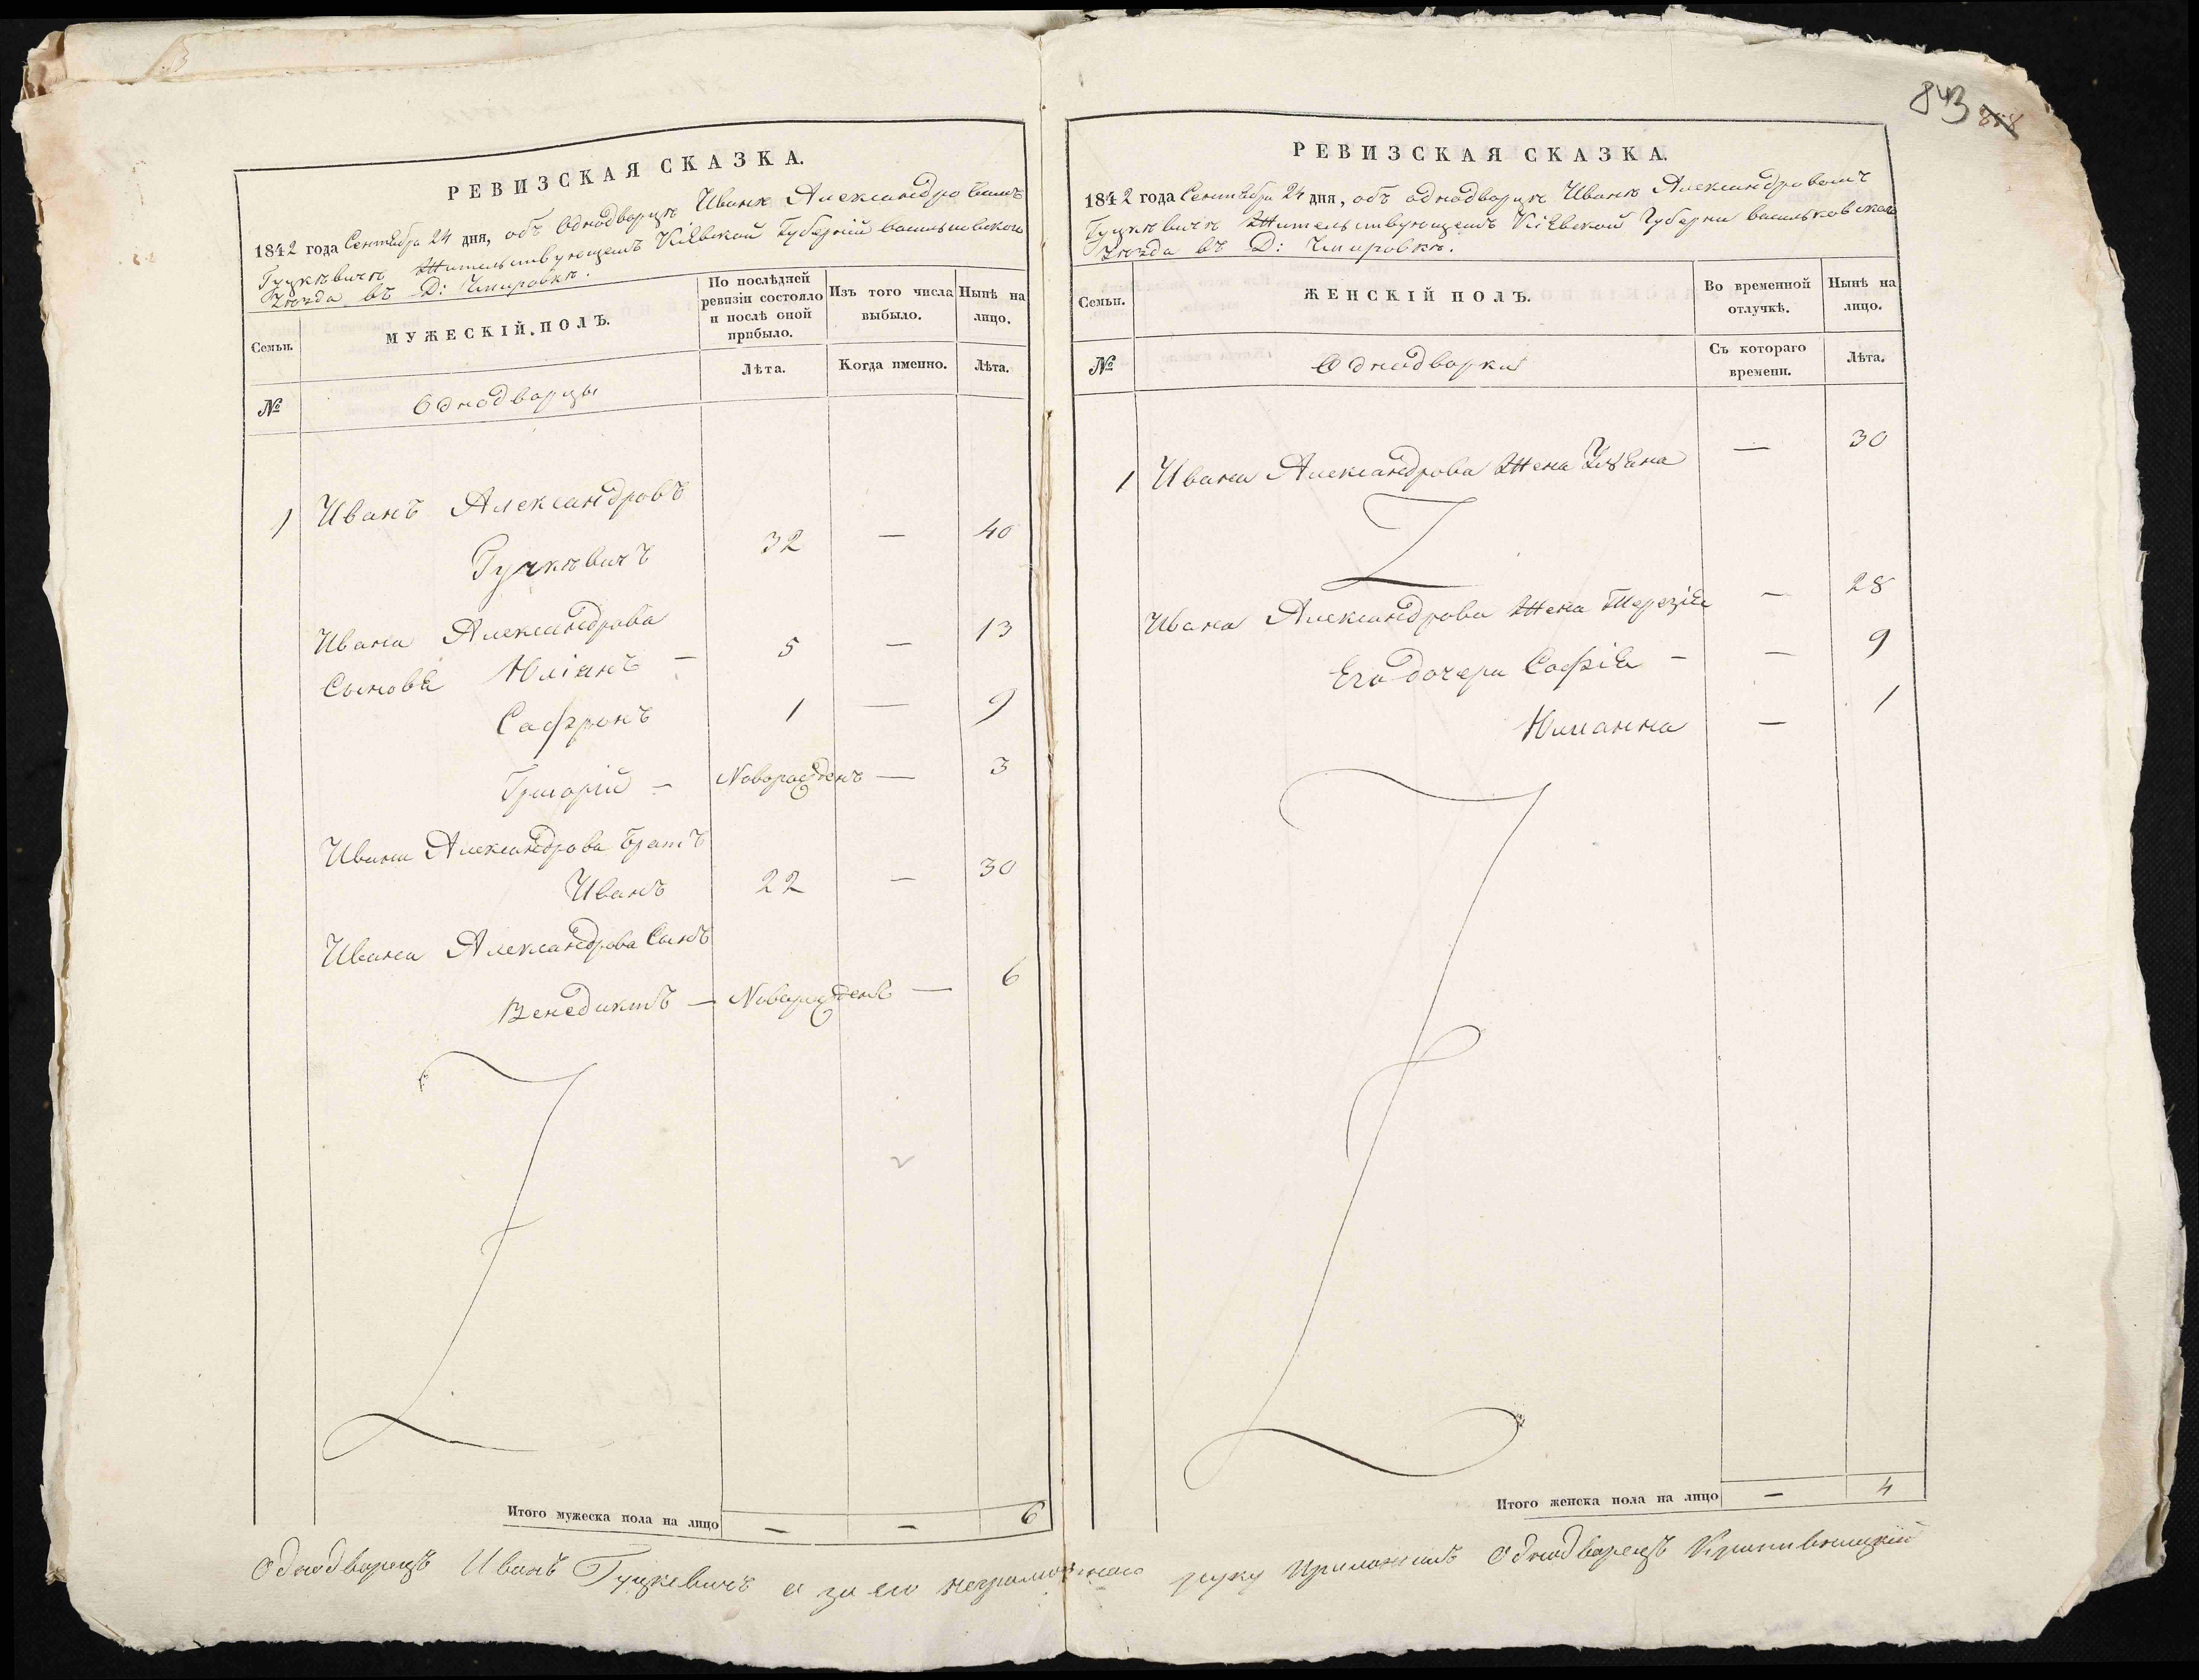 843 838
РЕВИЗСКАЯ СКАЗКА.
1842 года Сентября 24 дня, объ Однодворцѣ Иванѣ Александровичѣ
Гуцкѣвичѣ Жительствующемъ Кіевской Губерніи васильковского
уѣзда въ Д:
Семьи.
МУЖЕСКІЙ.ПОЛЪ.
По послѣдней ревизіи состояло и послѣ оной прибыло.
Изъ того числа выбыло.
Нынѣ на лицо.
№
Однодворцы
Лѣта.
Когда именно.
Лѣта.
1 Иванъ Александровъ
Гуцкѣвичъ 32 — 40
Ивана Александрова
Сыновя Юліянъ — 5 — 13
Сафронъ 1 — 9
Григорій — Новорожденъ — 3
Ивана Александрова братъ
Иванъ 22 — 30
Ивана Александрова Сынъ
Венедиктъ — Новорожденъ — 6
Итого мужеска пола на лицо — — 6
РЕВИЗСКАЯ СКАЗКА.
1842 года Сентября 24 дня, объ однодворцѣ Иванѣ Александровичѣ
Гуцкѣвичѣ Жительствующемъ Кіевской Губерни васильковского
уѣзда въ Д:
Семьи.
ЖЕНСКІЙ ПОЛЪ.
Во временной отлучкѣ.
Нынѣ на лицо.
№
Однодворки
Съ котораго времени.
Лѣта.
1 Ивана Александрова Жена — 30
Ивана Александрова Жена Терезія — 28
Его дочери Софія — — 9
Юлианна — 1
Итого женска пола на лицо — 4
Однодворецъ Иванъ Гуцкевичъ а за его неграмотного руку Приложилъ Однодворецъ